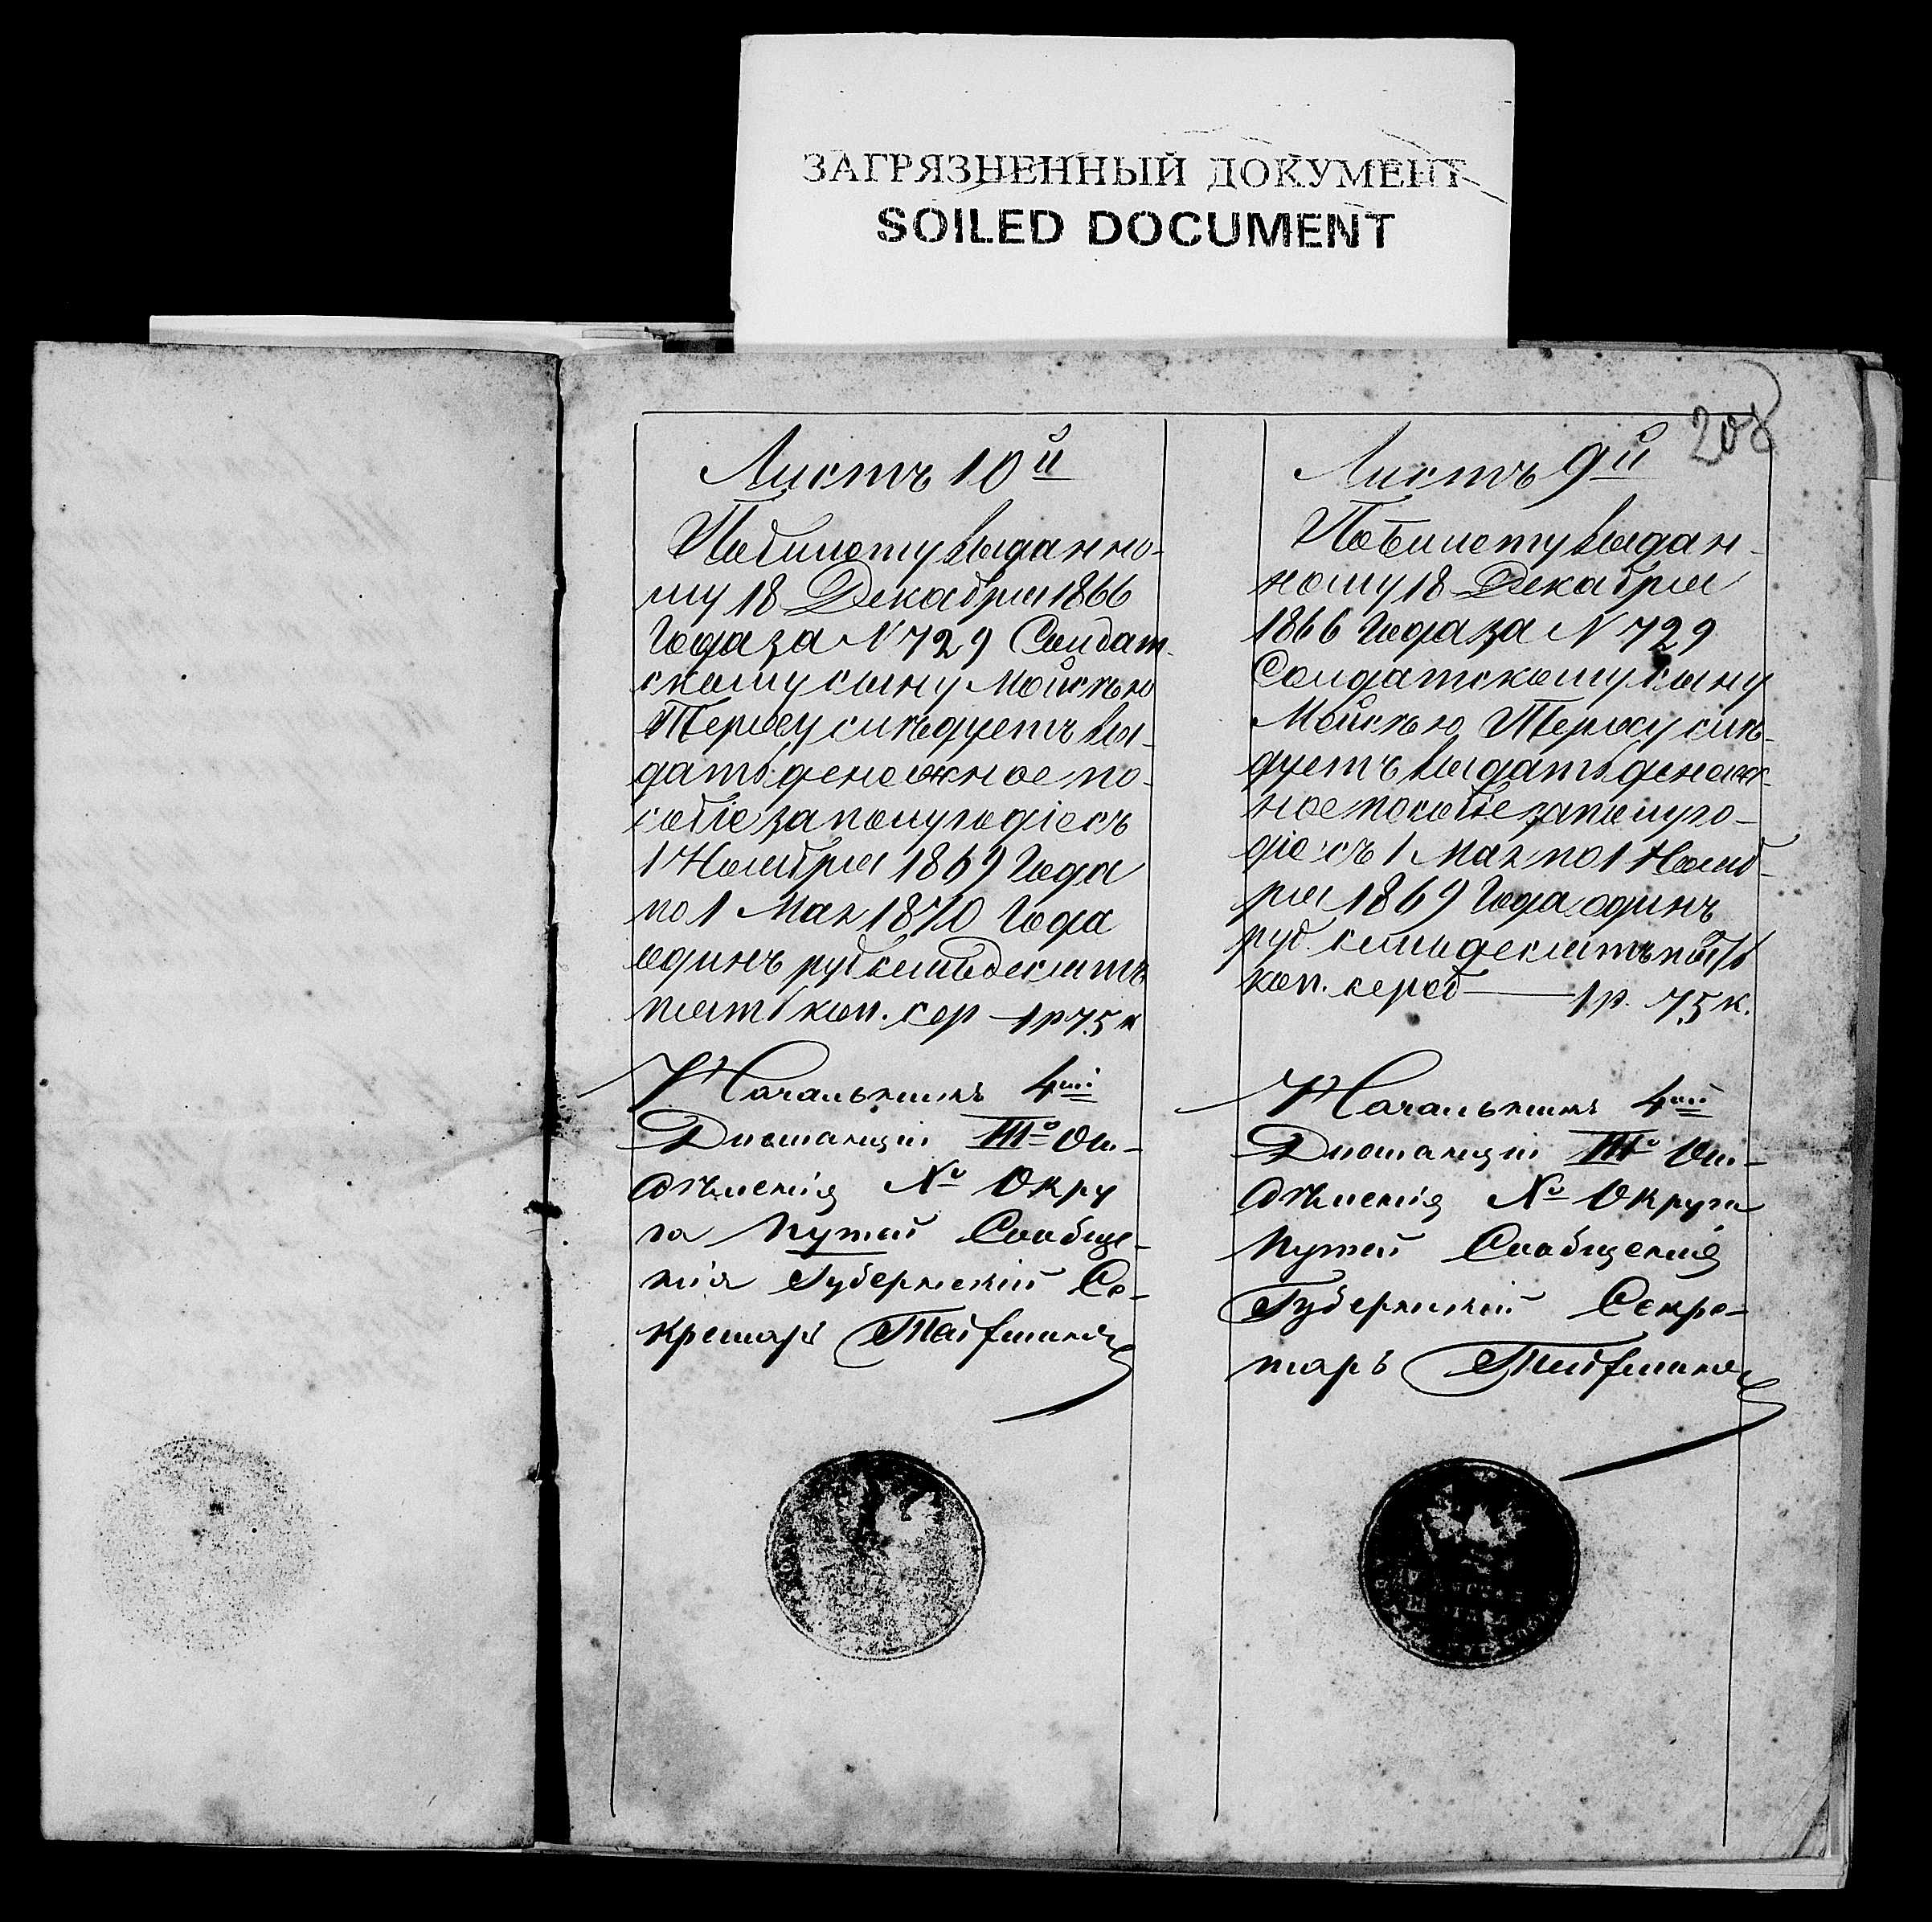 ЗАГРЯЗНЕННЫЙ ДОКУМЕНТ
SOILED DOCUMENT
208
Листъ 10й
По билету выданно-
му 18 Декабря 1866
Года за N 729 Солдат-
скому сыну Мойсѣю
Терлеу слѣдуетъ вы-
дать денежное по-
собіе за полугодіе съ
1 Ноября 1869 Года
по 1 Мая 1870 Года
одинъ руб семьдесятъ
пять коп. сер — 1 р 75 к
Начальникъ 4ой
Дистанціи IIIо От-
дѣленія No Окру
га Путей Сообще-
нія Губернскій Се-
кретарь
Листъ 9й
По билету выдан-
ному 18 Декабря
1866 Года за N 729
Солдатскому сыну
Мойсѣю слѣ-
дуетъ выдать денеж-
ное пособіе за полуго-
діе съ 1 Мая по 1 Нояб-
ря 1869 Года одинъ
руб. семьдесятъ пять
коп. сереб — 1 р. 75 к.
Начальникъ 4ой
Дистанціи IIIо От-
дѣленія No Округа
Путей Сообщенія
Губернскій Секре-
тарь